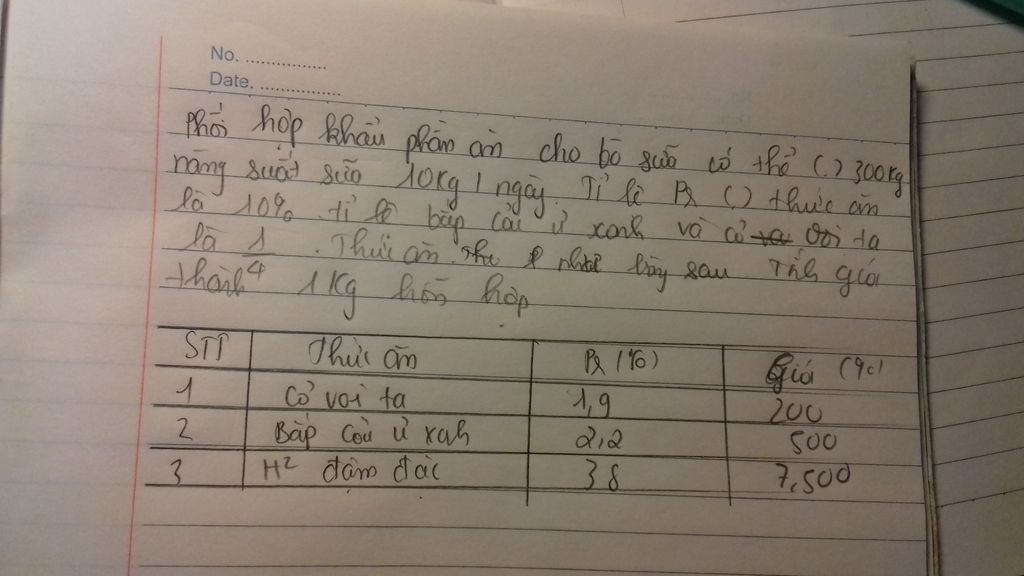 No. ................
Date. ................
phối hợp khẩu phần ăn cho bò sữa có thể () 300kg
năng suất sữa 10kg/ngày. Tỉ lệ Pr () thức ăn
là 10%. tỉ lệ bắp cải ủ xanh và cỏ voi ta
là 1/4. Thức ăn như bảng sau Tính giá
thành 1 Kg hỗn hợp
STT Thức ăn Pr (%) Giá
1 Cỏ voi ta 1,9 200
2 Bắp cải ủ xanh 2,2 500
3 H² đậm đặc 38 7,500